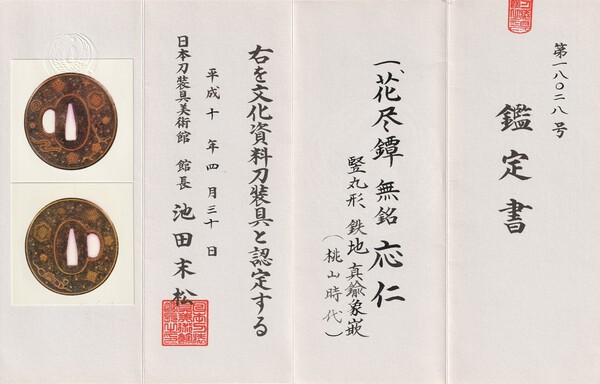 第一八〇二八号
鑑定書
一、花尽鐔 無銘 応仁
竪丸形 鉄地真鍮象嵌
(桃山時代)
右を文化資料刀装具と認定する
平成十年四月三十日
日本刀装具美術館 館長 池田末松